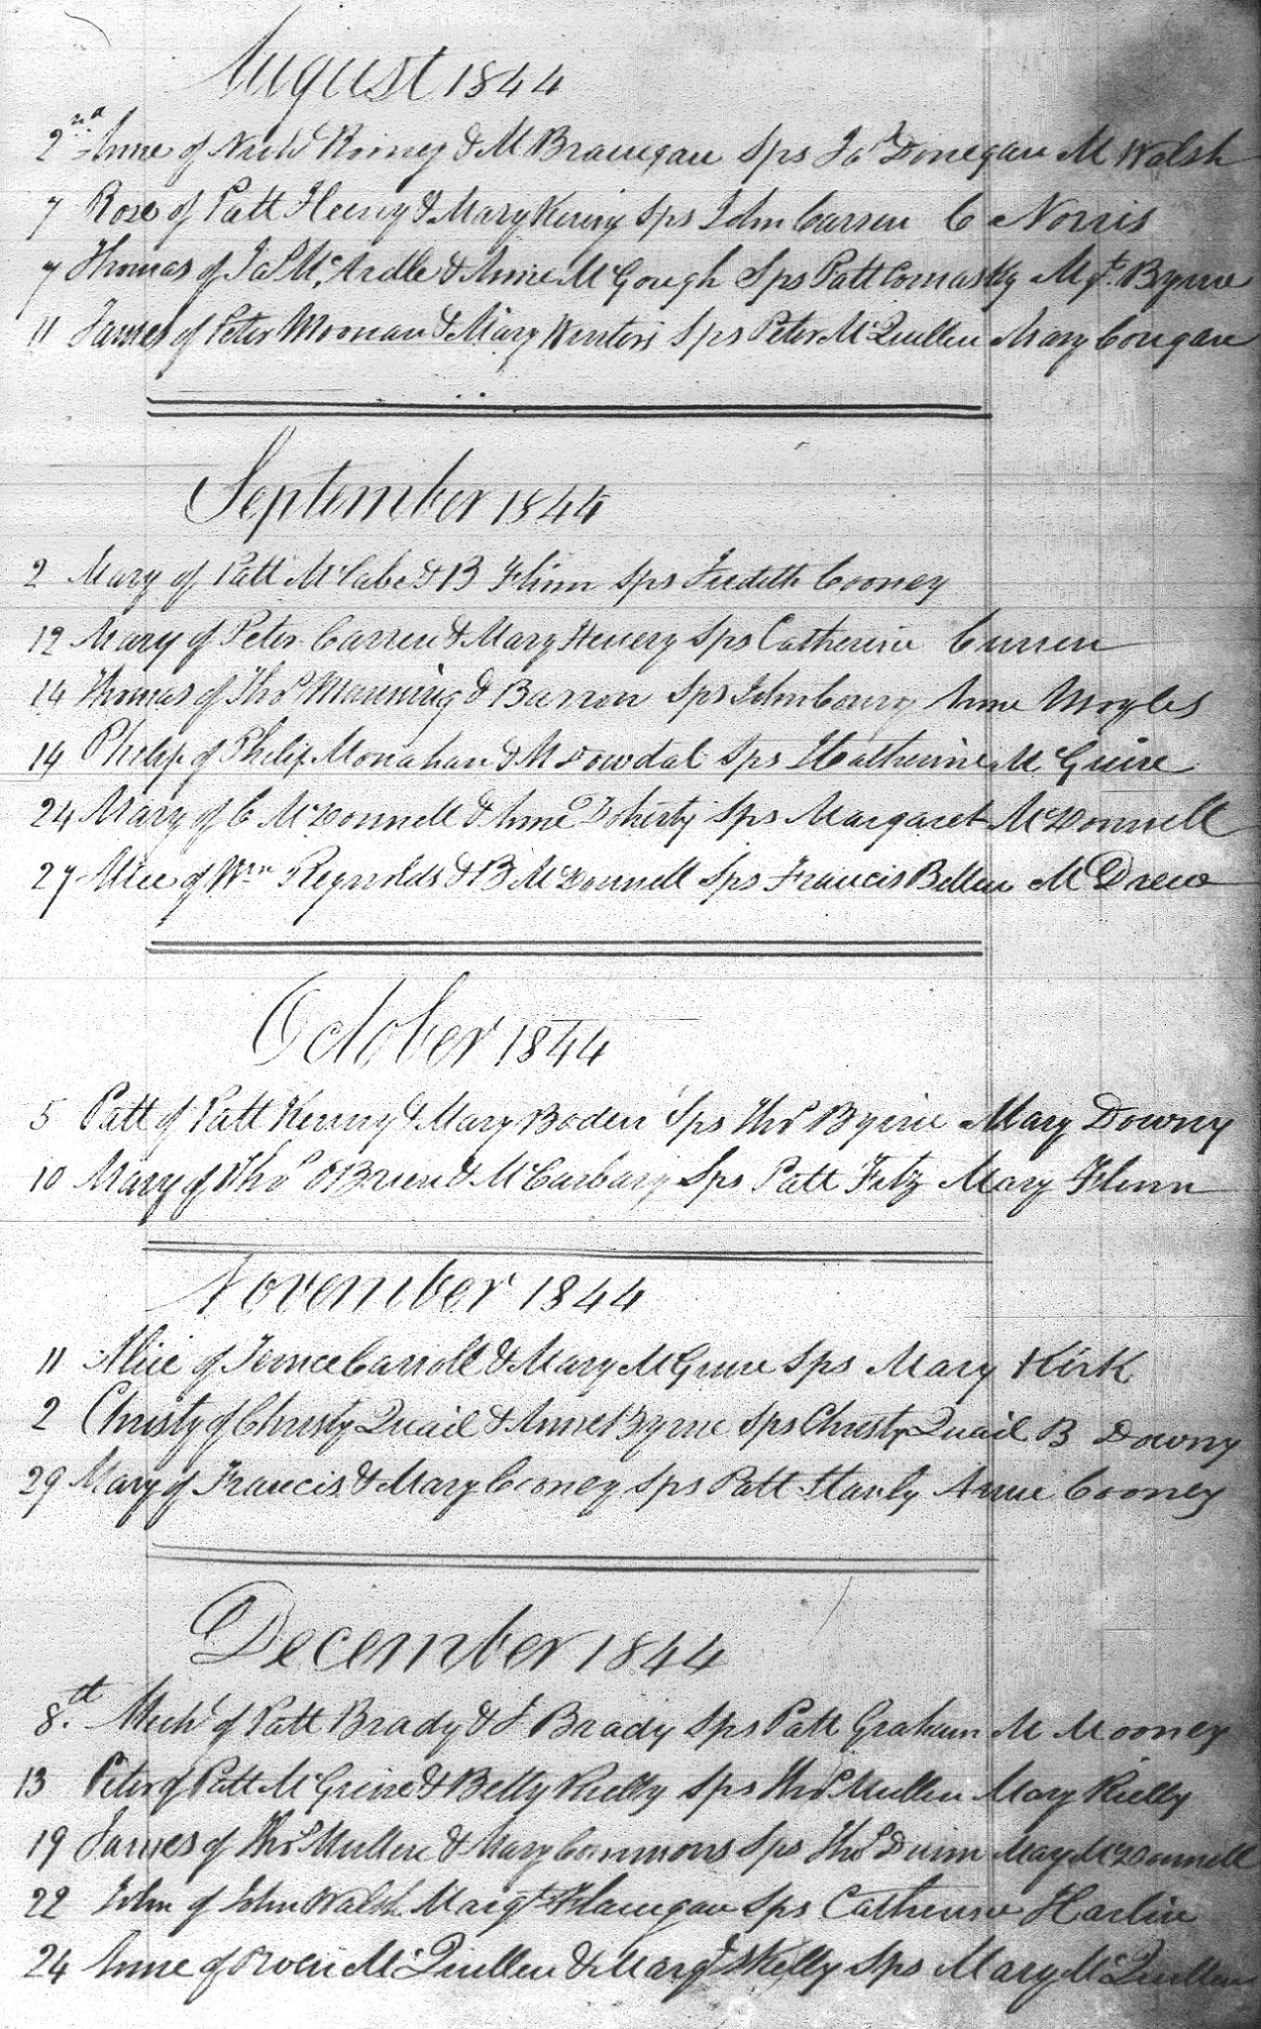 August 1844
2nd Anne of Richd Romey & M Branegan Sps Jas Donegan M Walsh
7 Rose of Patt Heeny & Mary Sps John Carren C Norris
7 Thomas of Jas McArdle & Anne McGough Sps Patt Comasky Mgt Byrne
11 James of Peter Moonan & Mary Winters Sps Peter McQuillen Mary Cougan
September 1844
2 Mary of Patt McCabe & B Flinn Sps Judith Cooney
12 Mary of Peter Carren & Mary Henery Sps Catherine Curren
14 Thomas of Thos Manning & Barron Sps John Anne Moyles
14 Philip of Philip Monahan & M Dowdal Sps Catherine McGuire
24 Mary of C McDonnell & Anne Doherty Sps Margaret McDonnell
27 Alice of Wm Reynolds & B McDonnell Sps Francis Bellew M Drew
October 1844
5 Patt of Patt Kenny & Mary Boden Sps Thos Byrne Mary Downy
10 Mary of Thos OBrien & McCarbary Sps Patt Fitz Mary Flinn
November 1844
11 Alice of Carroll & Mary McGuire Sps Mary Kirk
2 Christy of Christy Quail & Anne Byrne Sps Christy Quail B Downy
29 Mary of Francis & Mary Cooney Sps Patt Stanly Anne Cooney
December 1844
8th Michl of Patt Brady & J Brady Sps Patt Graham M Mooney
13 Peter of Patt McGuire & Betty Rielly Sps Thos Mullen Mary Rielly
19 James of Thos Mullen & Mary Commons Sps Thos Dunn Mary McDonnell
22 John of John Walsh Margt Flanegan Sps Catherine Harlin
24 Anne of Owen McQuillen & Margt Skelly Sps Mary McQuillen